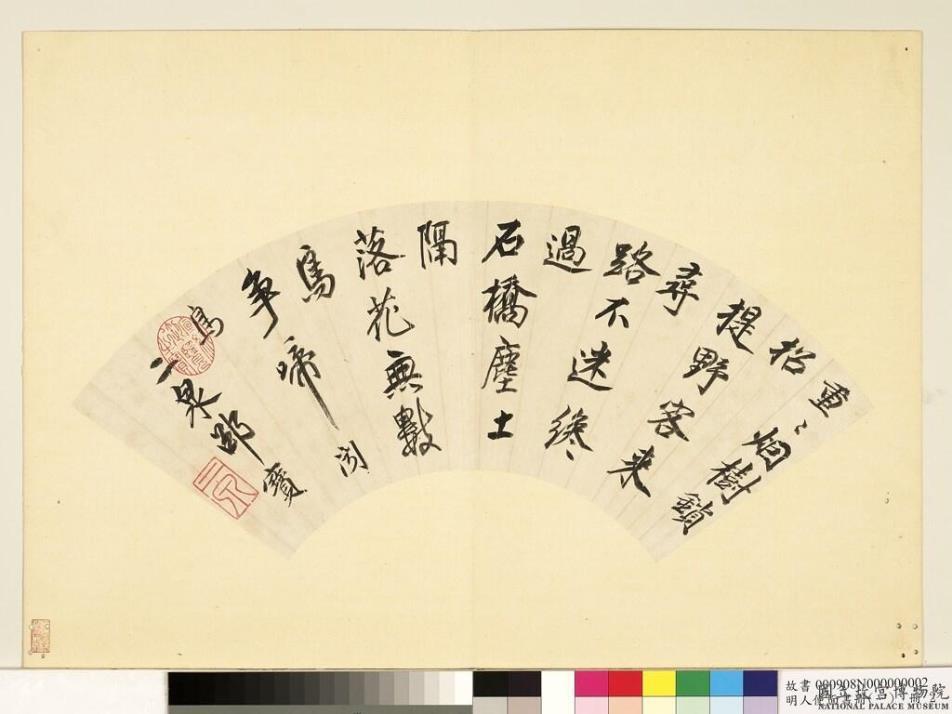 重〻烟樹鎖
招
提野客來
尋
路不迷纔
過
石橋塵土
隔
落花無數
鳥
爭啼
二泉邵寶
二泉
故書 000908N000000002
明人便面畫冊
國立故宮博物院
NATIONAL PALACE MUSEUM